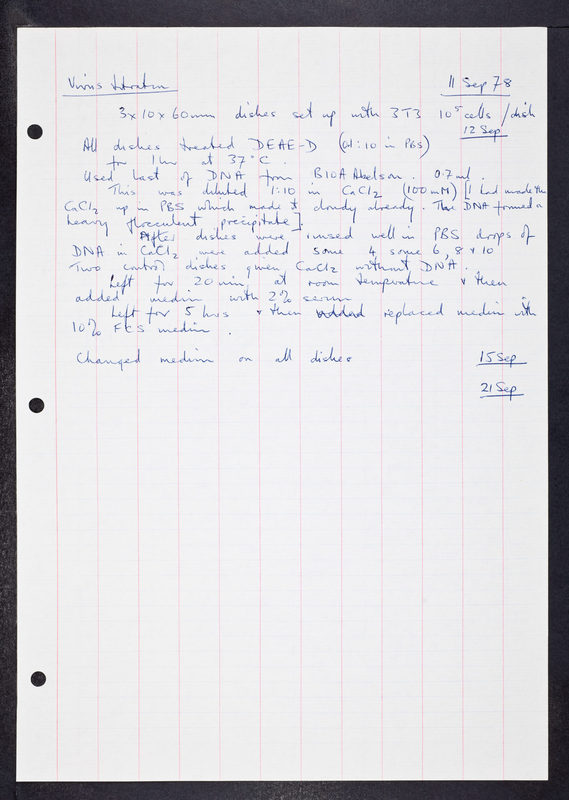 Virus titration 11 Sep 78
3 x 10 x 60mm dishes set up with 3T3 10⁵ cells / dish
12 Sep
All dishes treated DEAE-D (at 1:10 in PBS)
for 1hr at 37°C.
Used last of DNA from B10A Abelson. 0.7ml.
This was diluted 1:10 in CaCl2 (100mM) [I had made the
CaCl2 up in PBS which made it cloudy already. The DNA formed a
heavy flocculent precipitate]
After dishes were rinsed well in PBS drops of
DNA in CaCl2 were added some 4 some 6, 8 & 10
Two control dishes given CaCl2 without DNA.
Left for 20 min at room temperature & then
added medium with 2% serum
Left for 5 hrs & then added replaced medium with
10% FCS medium.
Changed medium on all dishes 15 Sep
21 Sep